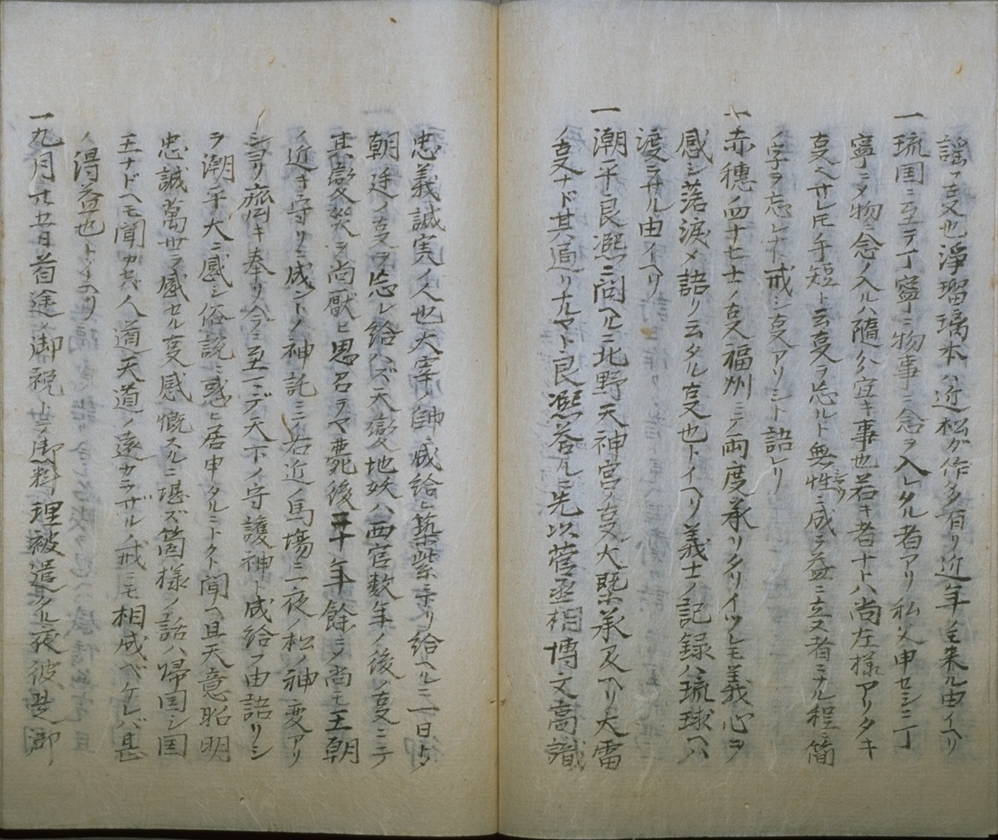 謡フ叓也浄瑠璃本ハ近松ガ作多有リ近年モ来ル由イヘリ
一琉国ニ至テ丁寧ニ物事ニ念ヲ入レタル者アリ私ノ父申セシニ丁
寧ニメ物ニ念ノ入ルハ随分宜キ事也若キ者ナトハ尚左様アリタキ
叓ヘサレ圧手短ト云叓ヲ忘ルト無性ニ成ニ益ニ立ヌ者ニナル程ニ簡
ノ字ヲ忘レナト戒シ叓アリシト語レリ
一赤穂四十七士ノ叓福州ニテ両度承リタリイツレモ義心ヲ
感シ落涙メ語リ云タル叓也トイヘリ義士ノ記録ハ琉球ヘハ
渡ラサル由イヘリ
一潮平良凞ニ問ヘルニ北野天神宮ノ叓大槩承及ヘリ大雷
ノ叓ナド其通リナルヤト良凞答ルニ先以菅丞相博文高識
忠義誠実ノ人也大宰ノ帥ニ成給ヒ築紫ニ下リ給ヘルニ一日モ
朝廷ノ叓ヲ忘レ給ハズ天變地妖ハ西宮数年ノ後ノ叓ニテ
其變災ヲ尚厭ヒ思召ラマ薨後五十年餘ニテ尚モ王朝
ノ近キ守リニ成ントノ神託ニテ右近ノ馬場ニ一夜ノ松ノ神変アリ
ショリ廟キ奉リ今ニ至ニデ天下ノ守護神ト成給フ由語リシ
ヲ潮平大ニ感シ俗説ニ惑ヒ居申タルニトクト聞ヘ且天意昭明
忠誠萬世ヲ感セル叓感慨スルニ堪ズ箇様ノ話ハ帰国シ国
王ナドヘモ聞カせバ人道天道ノ遠カラザルノ戒ニモ相成ベケレバ甚
ノ得益也トイヘリ
一九月廿五日首途ノ御祝トテ御料理被遣タル夜彼是御